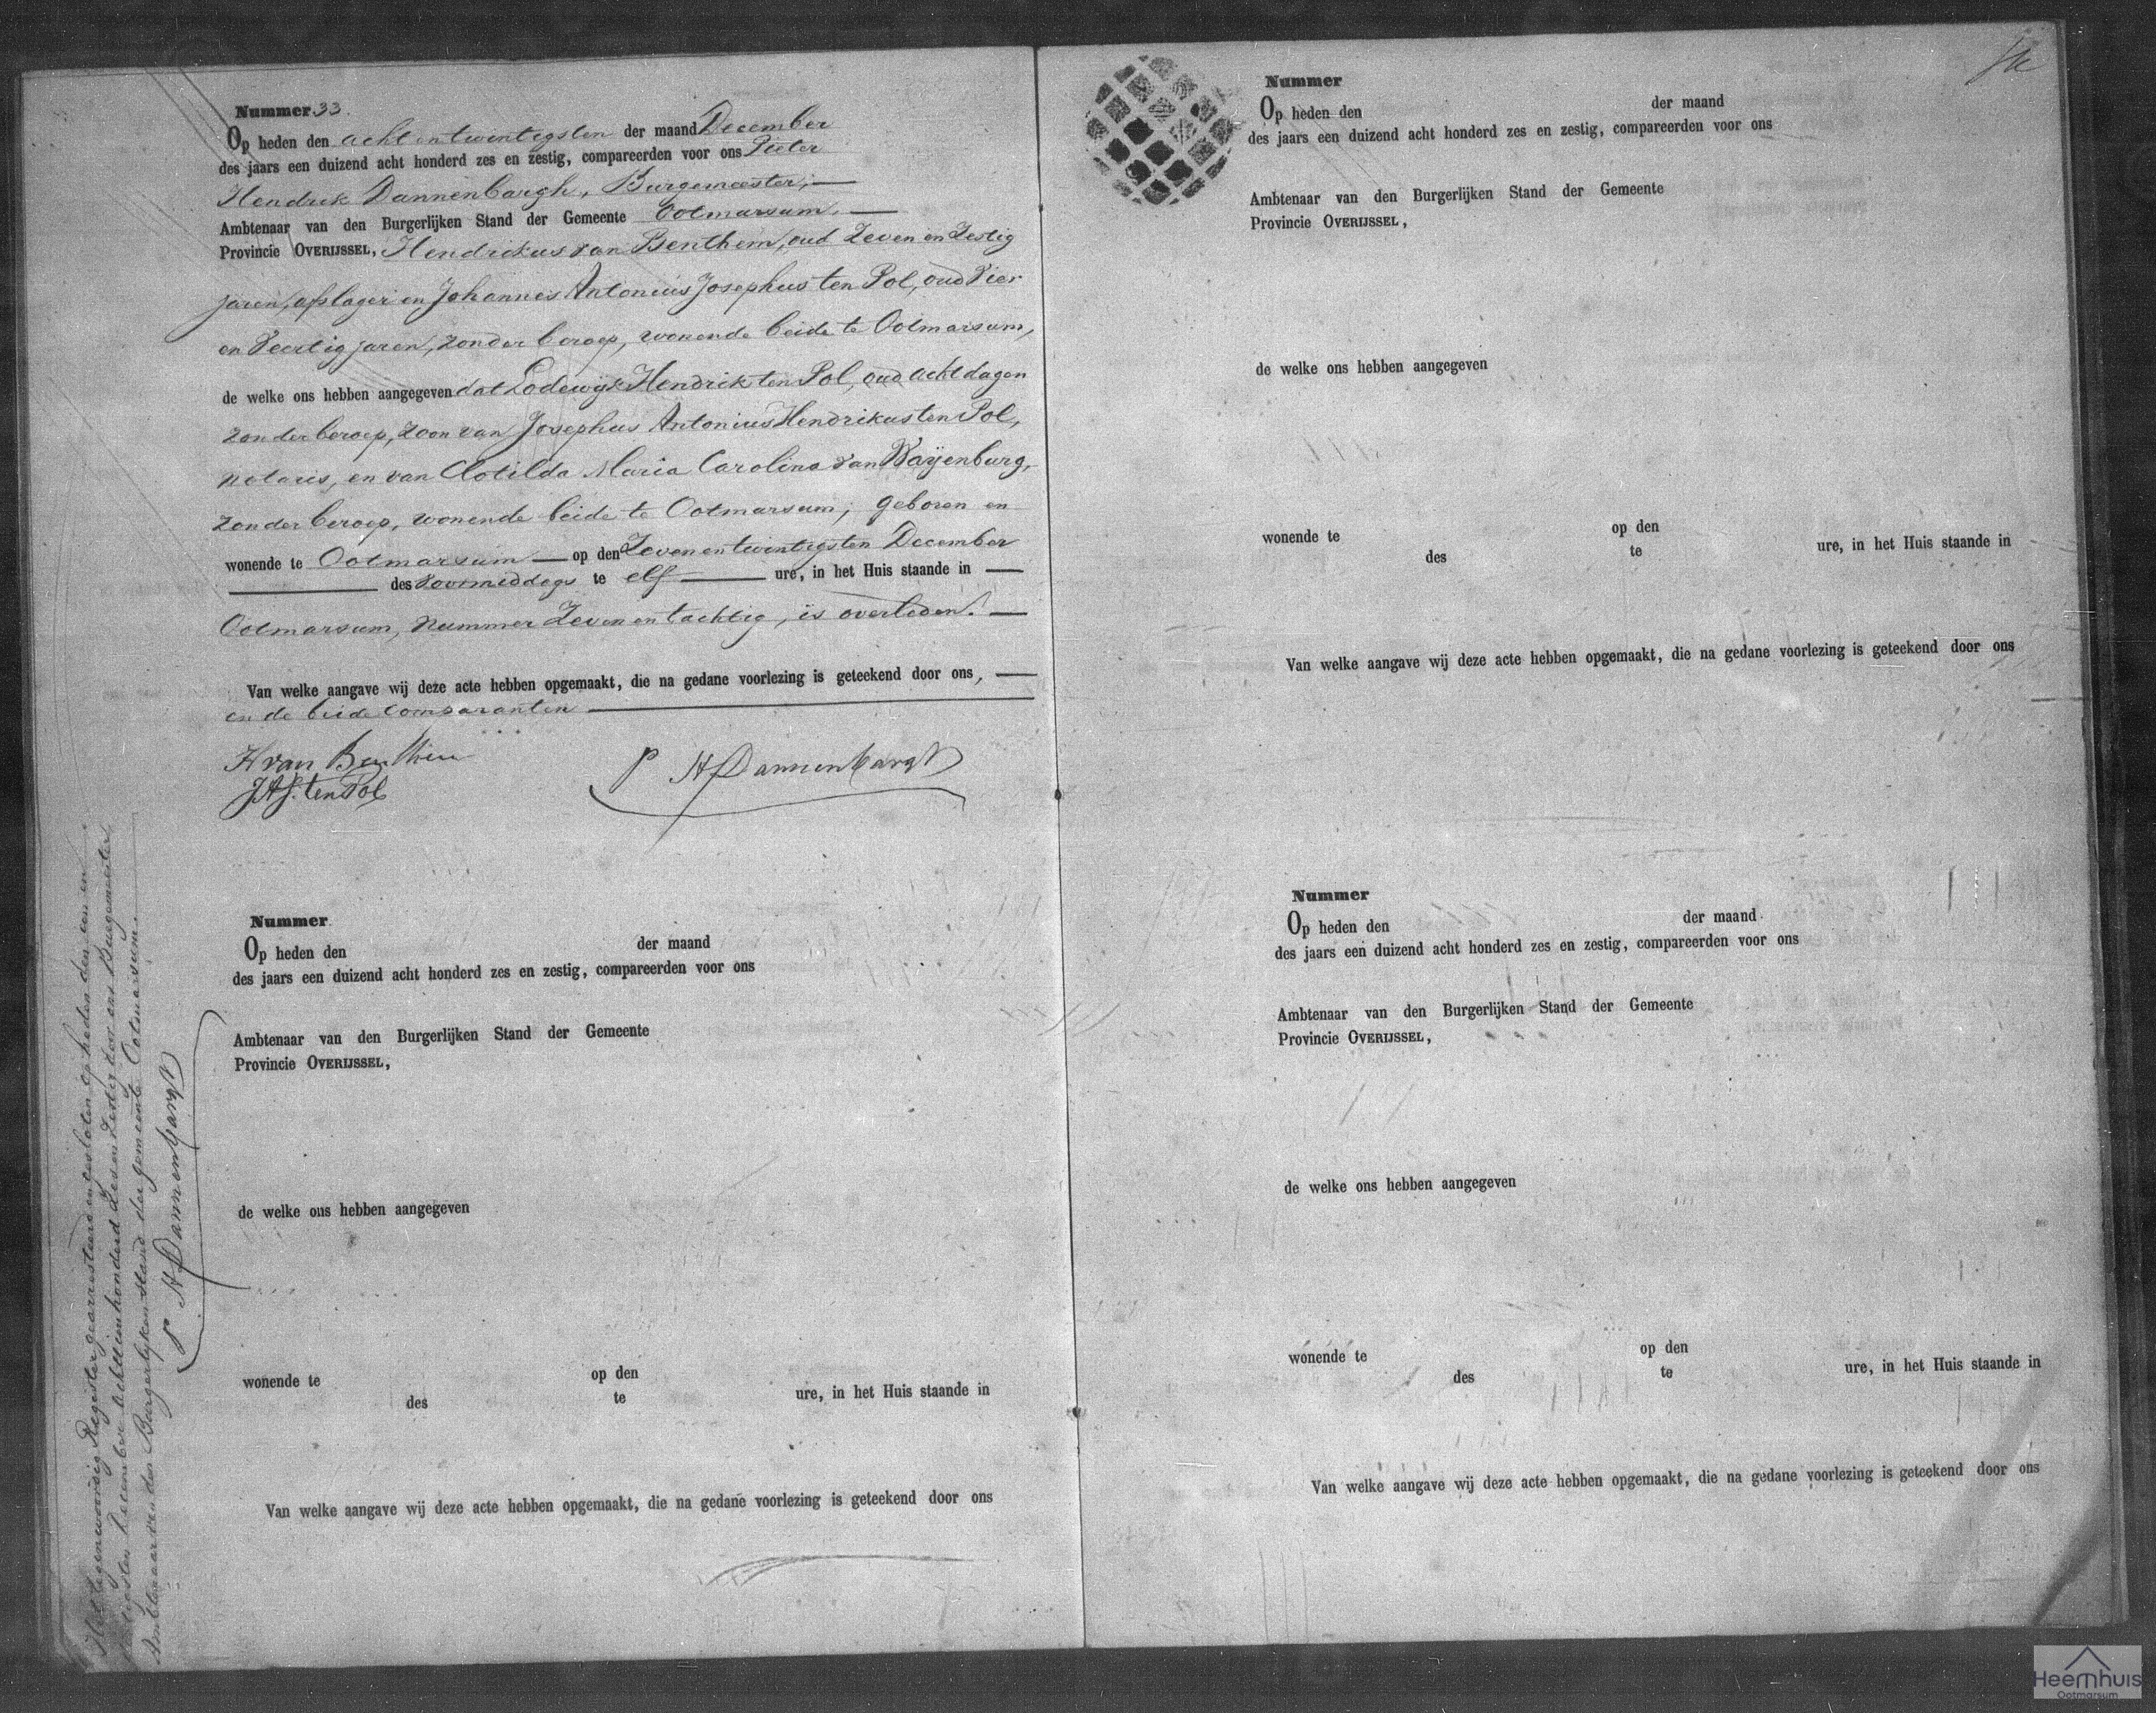 Nummer 33.
Op heden den acht en twintigsten der maand December
des jaars een duizend acht honderd zes en zestig, compareerden voor ons Pieter
Hendrik Dannenbargh, Burgemeester,
Ambtenaar van den Burgerlijken Stand der Gemeente Ootmarsum,
Provincie OVERIJSSEL, Hendrikus van Benthem, oud Zeven en Zestig
jaren, afslager en Johannes Antonius Josephus ten Pol, oud Vier
en Veertig jaren, zonder beroep, wonende beide te Ootmarsum,
de welke ons hebben aangegeven dat Lodewijk Hendrik ten Pol, oud acht dagen
zonder beroep, zoon van Josephus Antonius Hendrikus ten Pol,
notaris, en van Clotilda Maria Carolina van Wayenburg,
zonder beroep, wonende beide te Ootmarsum; geboren en
wonende te Ootmarsum op den Zeven en twintigsten December
des voormiddags te elf ure, in het Huis staande in
Ootmarsum, nummer Zeven en tachtig, is overleden.
Van welke aangave wij deze acte hebben opgemaakt, die na gedane voorlezing is geteekend door ons,
en de beide comparanten
H van Benthem
P H Dannenbargh
JAJ. ten Pol
Nummer
Op heden den der maand
des jaars een duizend acht honderd zes en zestig, compareerden voor ons
Ambtenaar van den Burgerlijken Stand der Gemeente
Provincie OVERIJSSEL,
de welke ons hebben aangegeven
wonende te op den
des te ure, in het Huis staande in
Van welke aangave wij deze acte hebben opgemaakt, die na gedane voorlezing is geteekend door ons
Het tegenwoordig Register gearresteerd en gesloten op heden den een en
dertigsten December achttienhonderd Zes en Zestig door ons Burgemeester,
Ambtenaar van den Burgerlijken stand der gemeente Ootmarsum.
P H Dannenbargh
Nummer
Op heden den der maand
des jaars een duizend acht honderd zes en zestig, compareerden voor ons
Ambtenaar van den Burgerlijken Stand der Gemeente
Provincie OVERIJSSEL,
de welke ons hebben aangegeven
wonende te op den
des te ure, in het Huis staande in
Van welke aangave wij deze acte hebben opgemaakt, die na gedane voorlezing is geteekend door ons
Nummer
Op heden den der maand
des jaars een duizend acht honderd zes en zestig, compareerden voor ons
Ambtenaar van den Burgerlijken Stand der Gemeente
Provincie OVERIJSSEL,
de welke ons hebben aangegeven
wonende te op den
des te ure, in het Huis staande in
Van welke aangave wij deze acte hebben opgemaakt, die na gedane voorlezing is geteekend door ons
Heemhuis
Ootmarsum